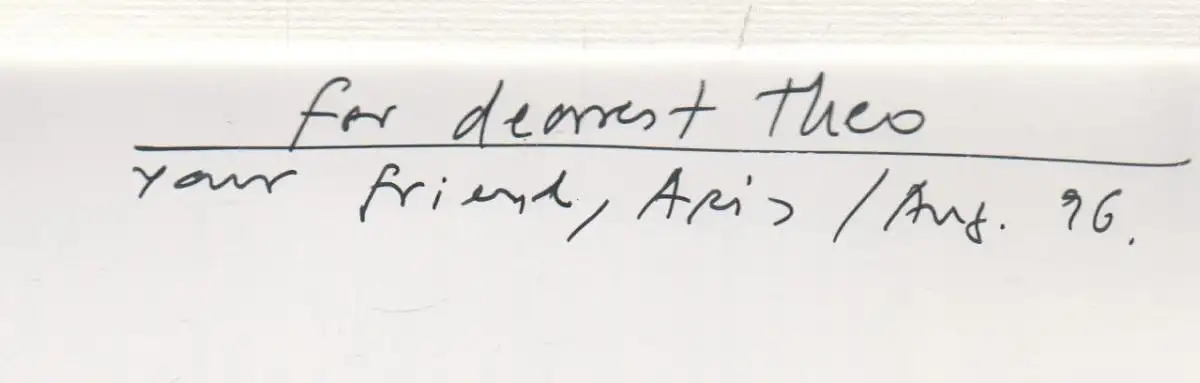 for dearest Theo
your friend, Aris / Aug. 96.